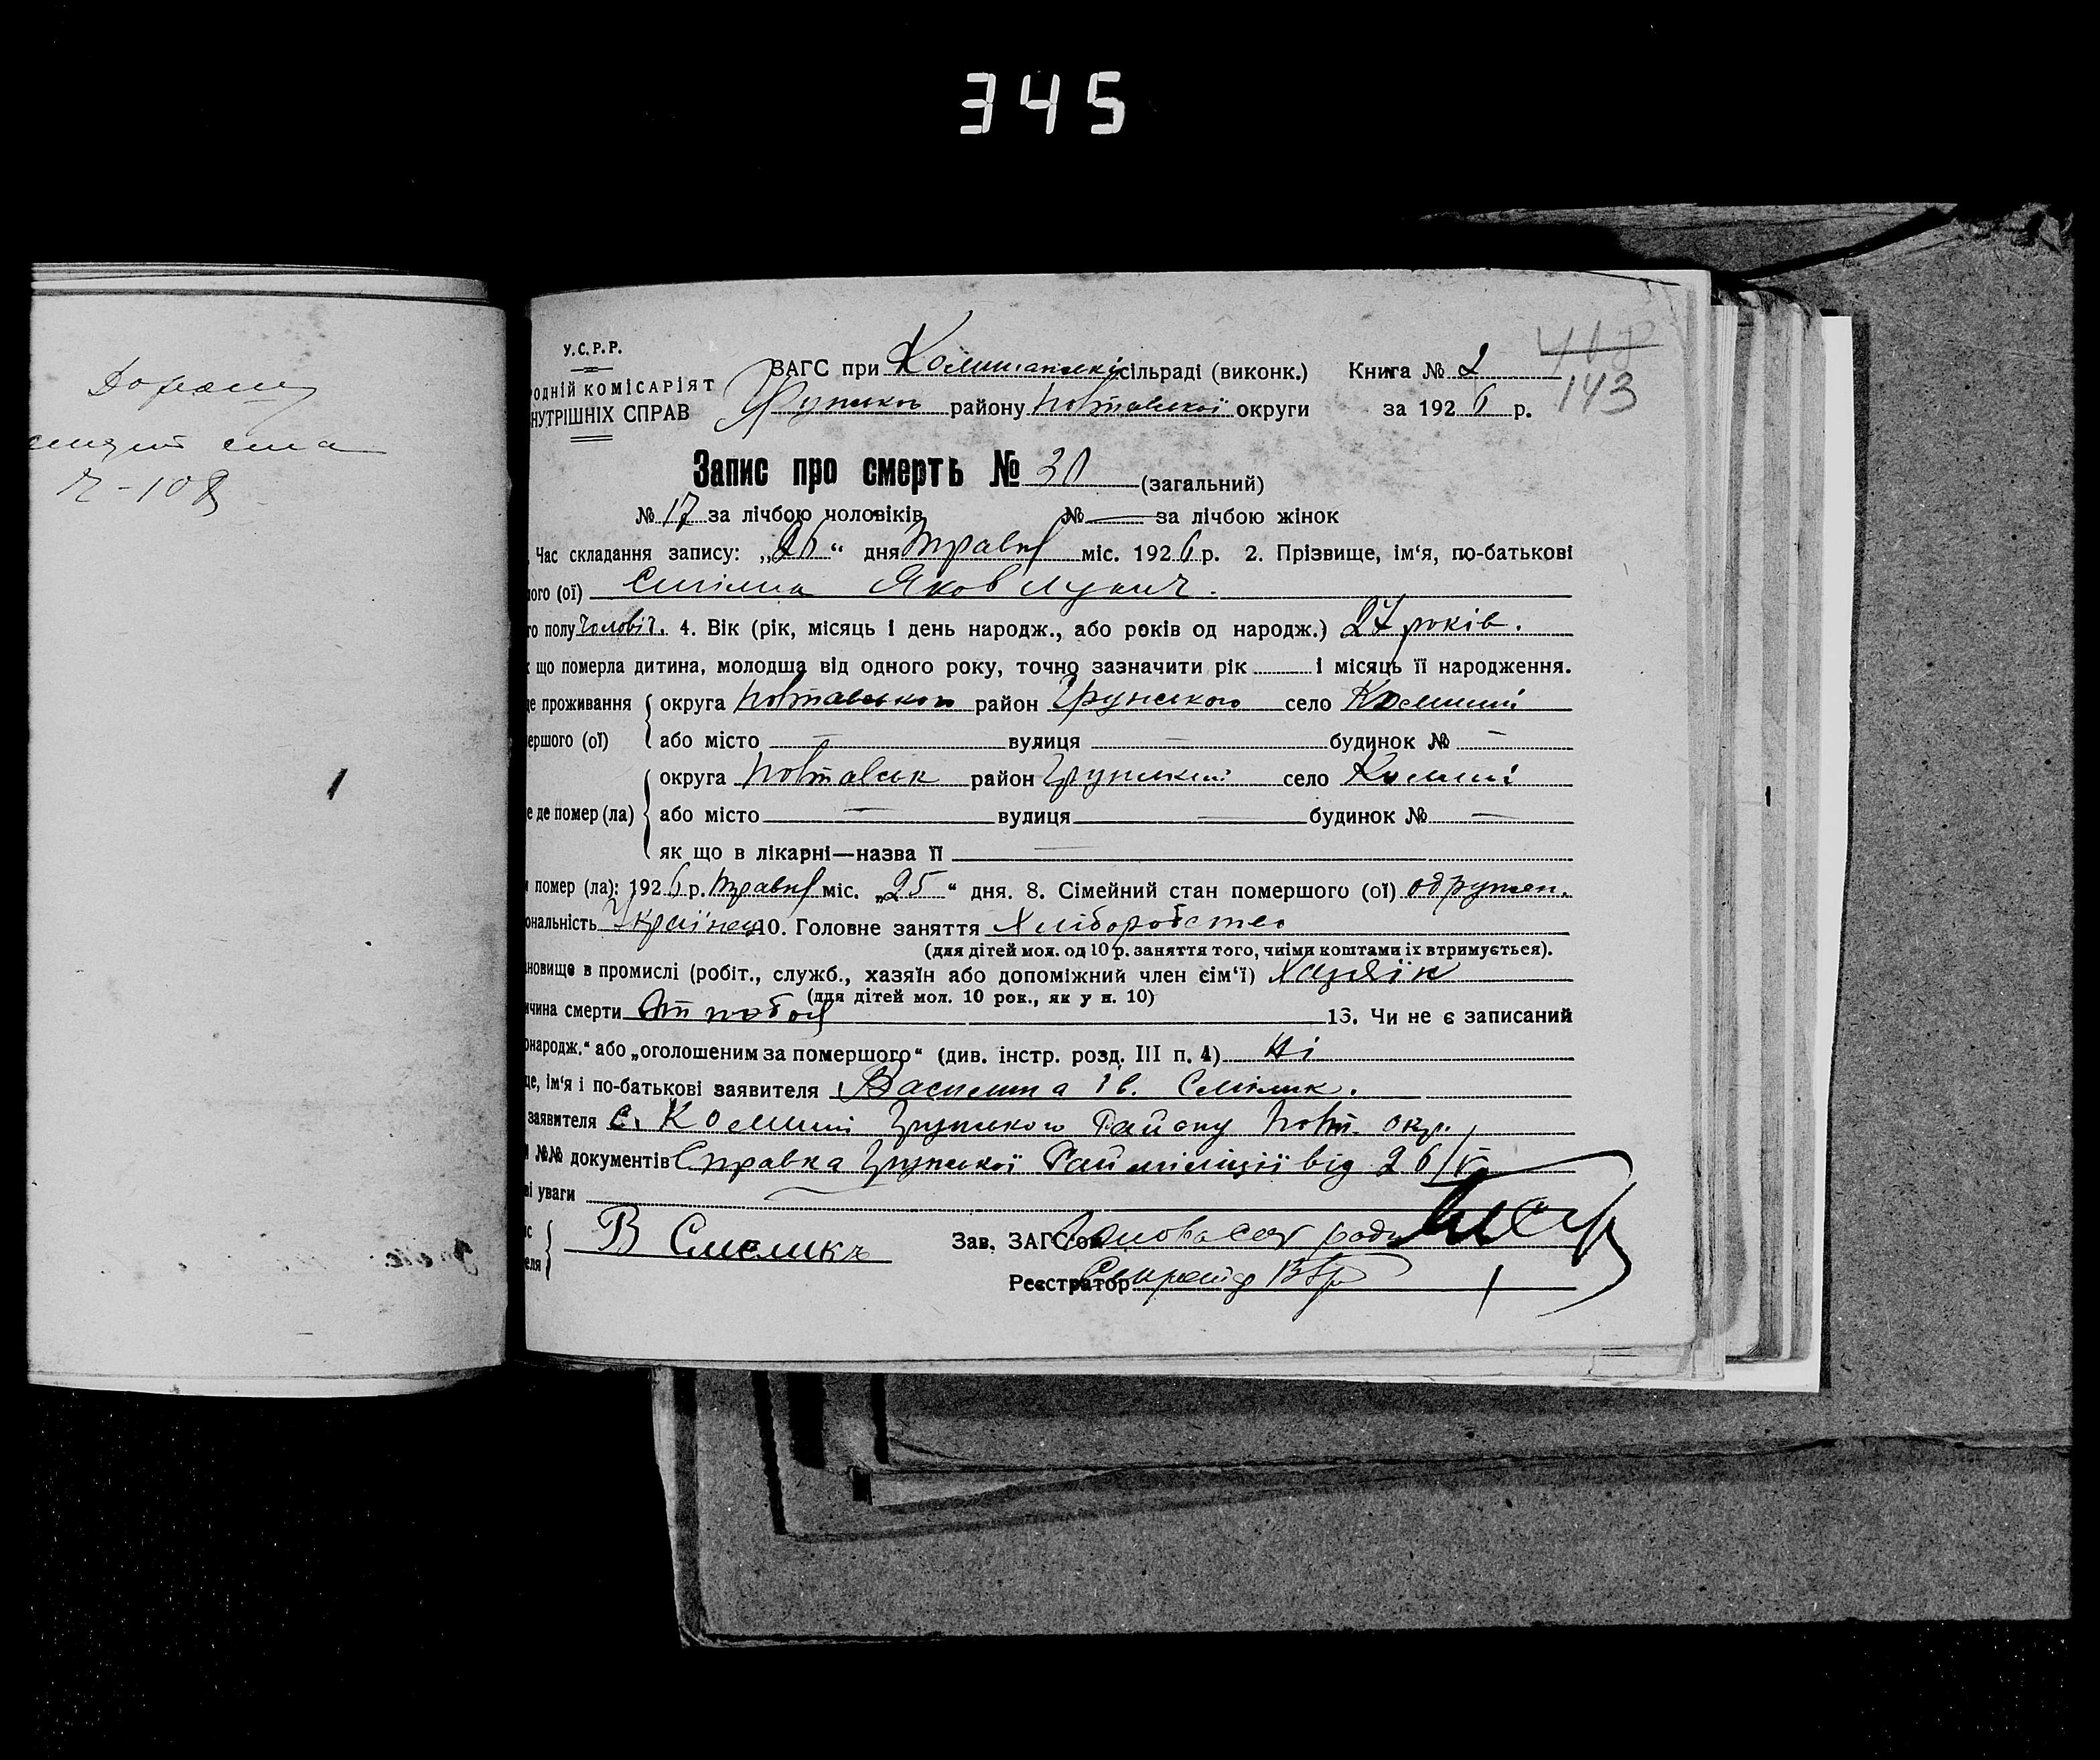 345
У.С.Р.Р.
РОДНІЙ КОМІСАРІЯТ
НУТРІШНІХ СПРАВ
ВАГС при сільраді (виконк.) Книга № 2
району Полтавської округи за 1926 р.
418
143
Запис про смерть № 30 (загальний)
№ 17 за лічбою чоловіків № — за лічбою жінок
Час складання запису: „26“ дня Травня міс. 1926 р. 2. Прізвище, ім‘я, по-батькові
ого (ої) Яков Лукич.
го полу чоловіч. 4. Вік (рік, місяць і день народж., або років од народж.) 27 років.
що померла дитина, молодша від одного року, точно зазначити рік і місяць її народження.
е проживання округа Полтавського район Грунського село
ершого (ої) або місто — вулиця — будинок № —
округа Полтавськ район Грунський село
е де помер (ла) або місто — вулиця — будинок № —
як що в лікарні—назва її —
помер (ла): 1926 р. Травня міс. „25“ дня. 8. Сімейний стан помершого (ої) одружен.
ональність Українец 10. Головне заняття Хліборобство
(для дітей мол. од 10 р. заняття того, чиїми коштами їх втримується).
новище в промислі (робіт., служб., хазяїн або допоміжний член сім‘ї) Хазяїн
(для дітей мол. 10 рок., як у п. 10)
ичина смерти От побоя 13. Чи не є записаний
онародж.“ або „оголошеним за помершого“ (див. інстр. розд. III п. 4) Ні
це, ім‘я і по-батькові заявителя Ів. Смілик.
заявителя с. Грунського Району Полт. окр.
№№ документів Справка Грунської Райміліції від 26/V
ві уваги
В Смеликъ Зав. ЗАГС‘ом Голова сел ради
Реєстратор Секретар